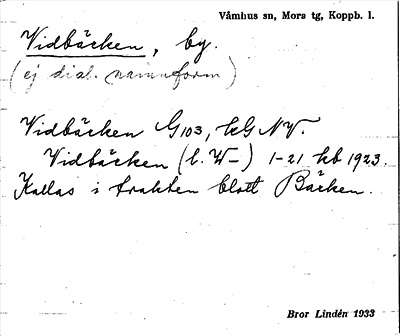 Våmhus sn, Mora tg, Koppb. l.
Vidbäcken, by.
(ej dial. namnform)
Vidbäcken G103, kG NV.
Vidbäcken (l. W–) 1-21 kb 1923.
Kallas i trakten blott Bäcken.
Bror Lindén 1933